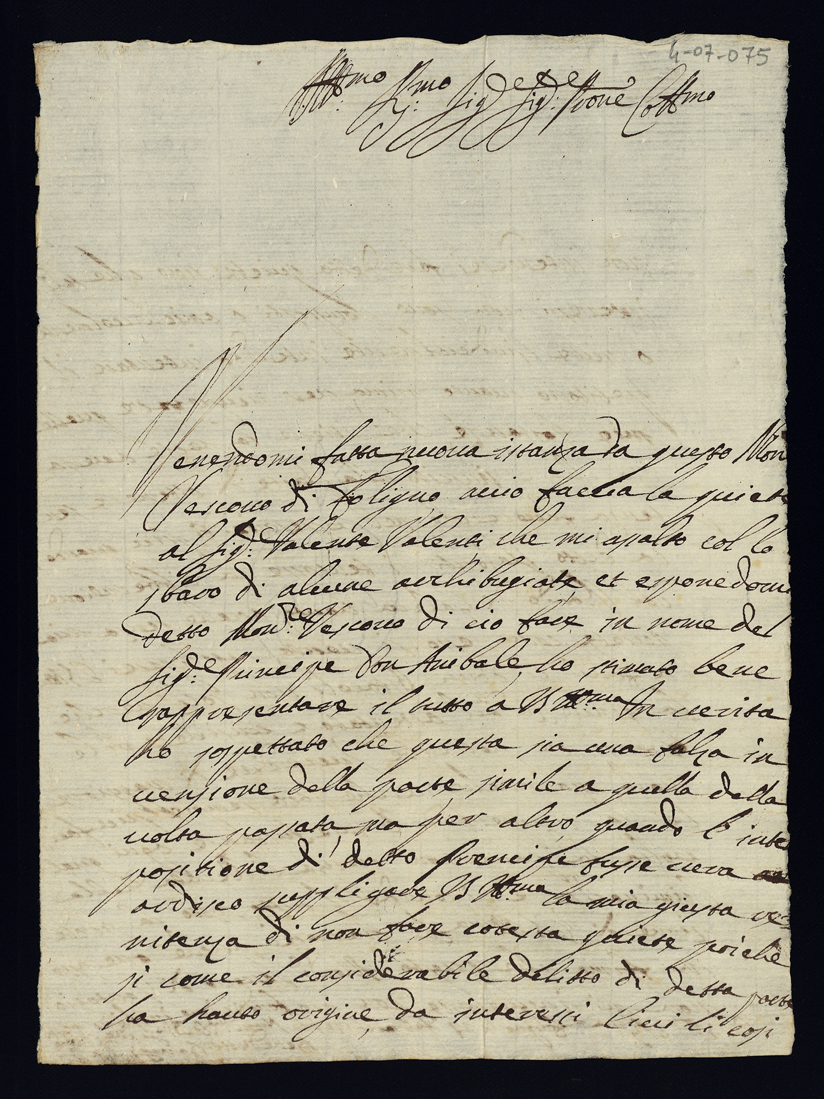 4-07-075
Ill.mo R.mo Sig.re Sig.re P'rone Coll.mo
Venendomi fatta nuova istanza da questo Mon
Vescovo di Foligno accio faccia la quiete
al Sig.r Valente Valenti che mi apalto col lo
sbaro di alcune archibugiate et esponedomi
detto Mon.re Vescovo di cio fare in nome del
Sig.re Principe Don Anibale, ho stimato bene
rappresentare il tutto a V Ill.ma In verita
ho sospettato che questa sia una falza in
venzione della parte simile a quella della
volta passata ma per altro quando l'inte
positione di detto Prencipe fusse vera
ardisco suppligare V Ill.ma la mia giusta re=
nitenza di non fare cotesta quiete poiche
si come il considerabile delitto di detta parte
ha hauto origine da interessi Civili cosi